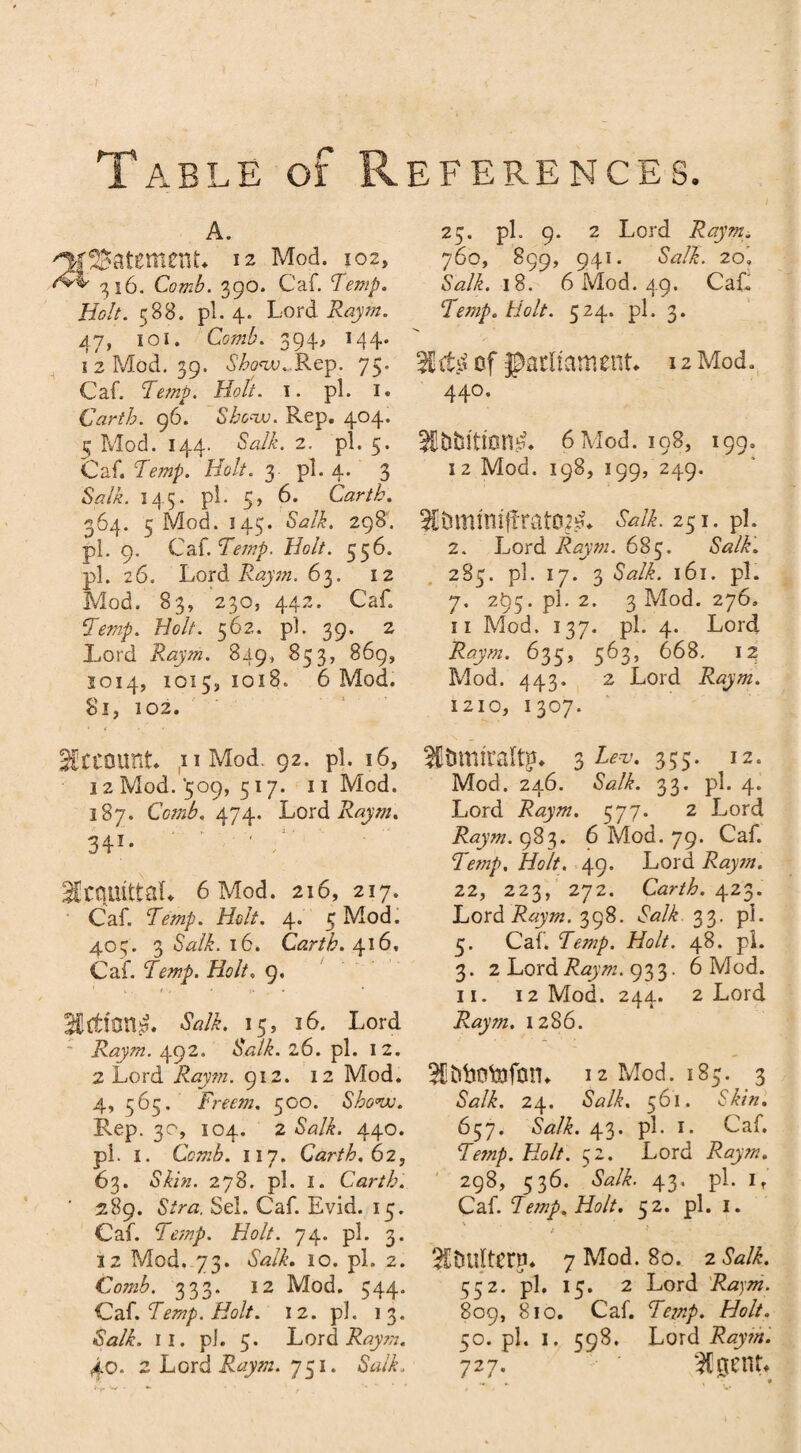 TABLE of REFERENCES.
A.
Abatement. 12 Mod. 102,
316. Comb. 390. Caſ. Temp.
Holt. 588. pl. 4. Lord Raym.
47, 101. Comb. 394, 144.
12 Mod. 39. Show. Rep. 75.
Caſ. Temp. Holt. 1. pl. 1.
Carth. 96. Show. Rep. 404.
5 Mod. 144. Salk. 2. pl. 5.
Caſ. Temp. Holt. 3 pl. 4. 3
Salk. 145. pl. 5, 6. Carth.
364. 5 Mod. 145. Salk. 298.
pl. 9. Caſ. Temp. Holt. 556.
pl. 26. Lord Raym. 63. 12
Mod. 83, 230, 442. Caſ.
Temp. Holt. 562. pl. 39. 2
Lord Raym. 849, 853, 869,
1014, 1015, 1018. 6 Mod.
81, 102.
Account. 11 Mod. 92. pl. 16,
12 Mod. 509, 517. 11 Mod.
187. Comb. 474. Lord Raym.
341.
Acquittal. 6 Mod. 216, 217.
Caſ. Temp. Holt. 4. 5 Mod.
405. 3 Salk. 16. Carth. 416.
Caſ. Temp. Holt. 9.
Actions. Salk. 15, 16. Lord
Raym. 492. Salk. 26. pl. 12.
2 Lord Raym. 912. 12 Mod.
4, 565. Freem. 500. Show.
Rep. 30, 104. 2 Salk. 440.
pl. 1. Comb. 117. Carth. 62,
63. Skin. 278. pl. 1. Carth.
289. Stra. Sel. Caſ. Evid. 15.
Caſ. Temp. Holt. 74. pl. 3.
12 Mod. 73. Salk. 10. pl. 2.
Comb. 333. 12 Mod. 544.
Caſ. Temp. Holt. 12. pl. 13.
Salk. 11. pl. 5. Lord Raym.
40. 2 Lord Raym. 751. Salk.
25. pl. 9. 2 Lord Raym.
760, 899, 941. Salk. 20,
Salk. 18. 6 Mod. 49. Caſ.
Temp. Holt. 524. pl. 3.
Acts of Parliament. 12 Mod.
440.
Additions. 6 Mod. 198, 199.
12 Mod. 198, 199, 249.
Adminiſtrators. Salk. 251. pl.
2. Lord Raym. 685. Salk.
285. pl. 17. 3 Salk. 161. pl.
7. 295. pl. 2. 3 Mod. 276.
11 Mod. 137. pl. 4. Lord
Raym. 635, 563, 668. 12
Mod. 443. 2 Lord Raym.
1210, 1307.
Admiralty. 3 Lev. 355. 12.
Mod. 246. Salk. 33. pl. 4.
Lord Raym. 577. 2 Lord
Raym. 983. 6 Mod. 79. Caſ.
Temp. Holt. 49. Lord Raym.
22, 223, 272. Carth. 423.
Lord Raym. 398. Salk 33. pl.
5. Caſ. Temp. Holt. 48. pl.
3. 2 Lord Raym. 933. 6 Mod.
11. 12 Mod. 244. 2 Lord
Raym. 1286.
Advowſon. 12 Mod. 185. 3
Salk. 24. Salk. 561. Skin.
657. Salk. 43. pl. 1. Caſ.
Temp. Holt. 52. Lord Raym.
298, 536. Salk. 43. pl. 1,
Caſ. Temp. Holt. 52. pl. 1.
Adultery. 7 Mod. 80. 2 Salk.
552. pl. 15. 2 Lord Raym.
809, 810. Caſ. Temp. Holt.
50. pl. 1. 598. Lord Raym.
727. Agent.